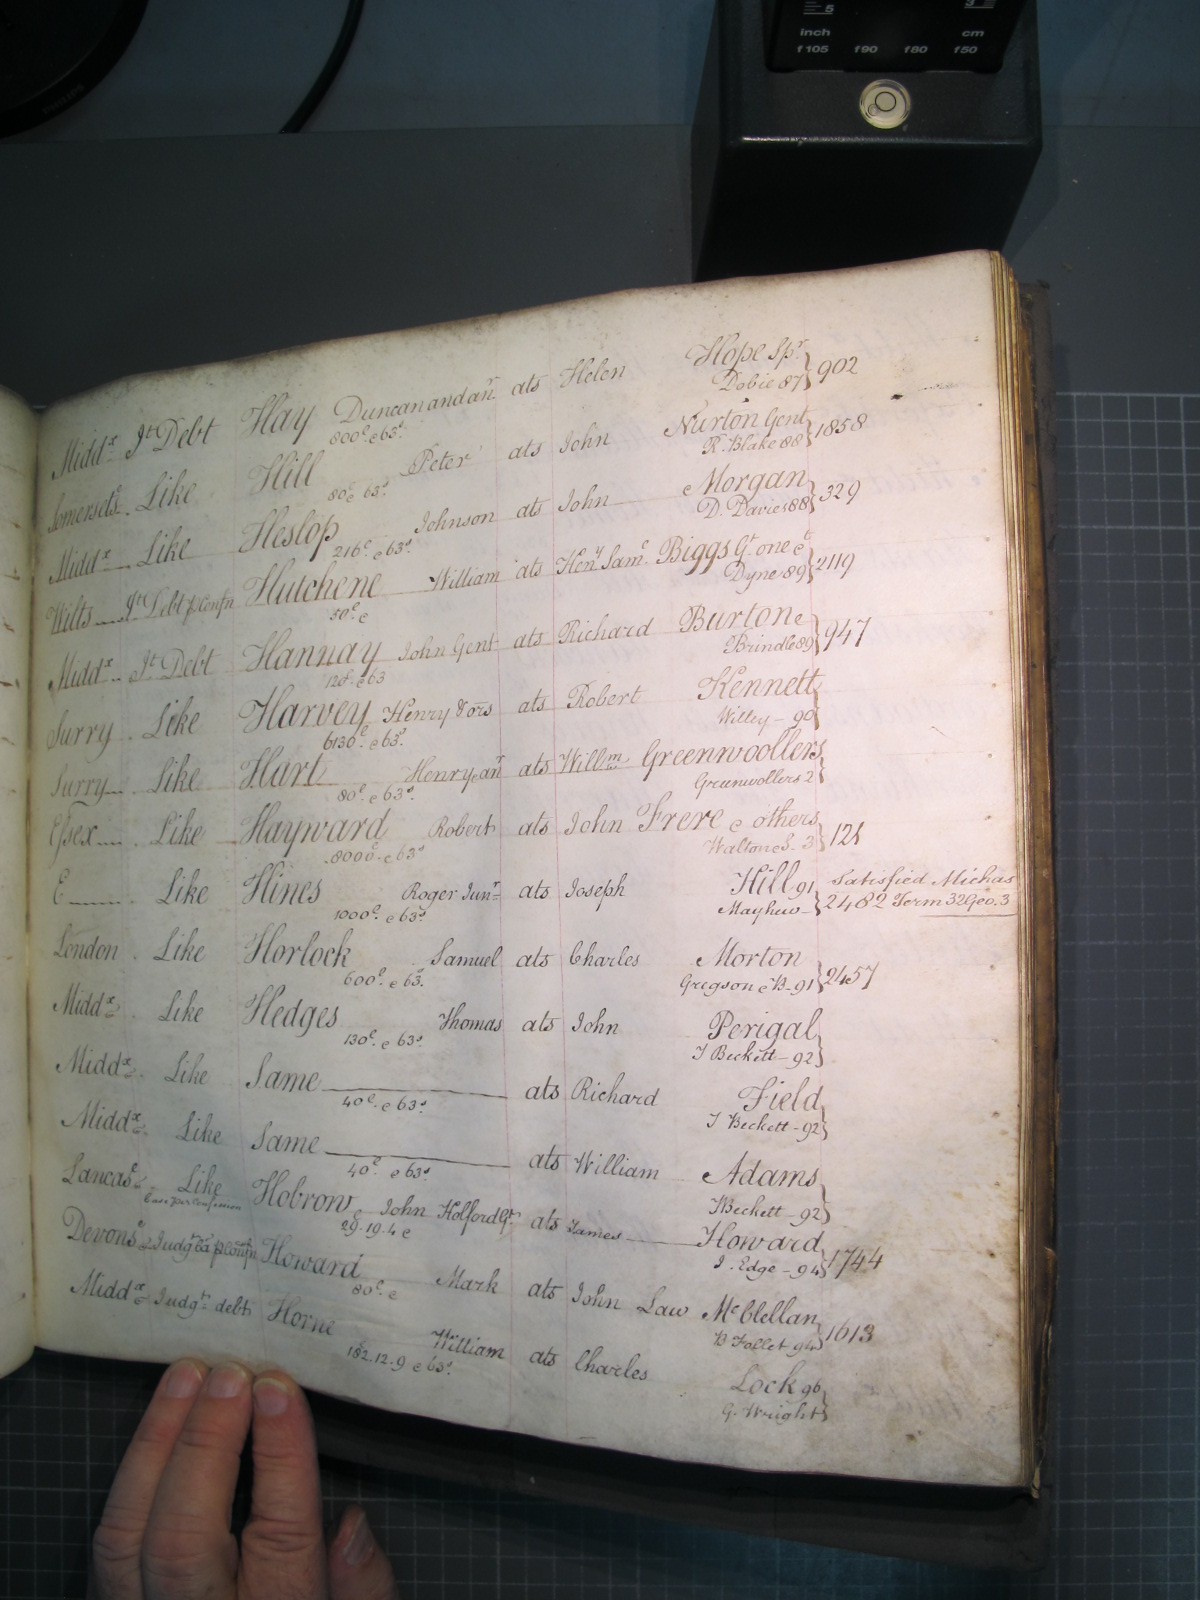 5
3
inch cm
f105 f90 f80 f50
PHILIPS
Midd.x Jt Debt Hay Duncan and anr. ats Helen Hope Spr.
800£. & 63s. Dobie 87 } 902
Somersets. Like Hill Peter ats John Nurton Gent
80£ & 63s. R. Blake 88 } 1858
Midd.x Like Heslop Johnson ats John Morgan
216£. & 63s. D. Davies 88 } 329
Wilts Jt Debt p Confn Hutchene William ats Heny Saml. Biggs Gt. one &ct
50£ & Dyne 89 } 2119
Midd.x Jt Debt Hannay John Gent ats Richard Burton
120£. & 63 Brindle 89 } 947
Surry Like Harvey Henry & ors ats Robert Kennett
6130£. & 63s. Willey 90
Surry Like Hart Henry an ats Willm Greenwoollers
80£. & 63s. Greenwollers 2
Essex Like Hayward Robert ats John Frere & others
8000£. & 63s Walton & S. 3 } 121
E Like Hines Roger Junr. ats Joseph Hill 91 Satisfied Michas
1000£. & 63s. Mayhew } 2482 Term 32 Geo. 3
London Like Horlock Samuel ats Charles Morton
600£. & 63. Gregson & B. 91 } 2457
Midd.x Like Hedges Thomas ats John Perigal
130£. & 63s. J Beckett 92 }
Midd.x Like Same ats Richard Field
40£. & 63s. J Beckett 92 }
Midd.x Like Same ats William Adams
40£. & 63s Beckett 92 }
Lancasr. Like Hobrow John Holford Gt. ats James Howard
Case per confession 29.19.4 & J. Edge 94 } 1744
Devons. Judgt Ca p Confn Howard Mark ats John Law McClellan
80£. & B Follet 94 } 1613
Midd.x Judgt. debt Horne William ats Charles Lock 96
182.12.9 & 63s. G. Wright }